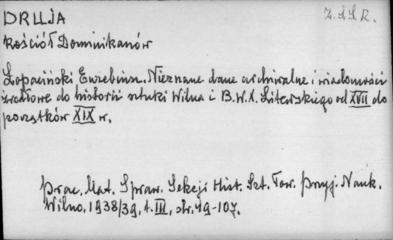 DRUJA
Z.S.S.R.
Kościół Dominikanów
Łopaciński Euzebiusz. Nieznane dane archiwalne i wiadomości
źródłowe do historii sztuki Wilna i B.W.X. Litewskiego od XVII do
początków XIX w.
Prac. Mat. Spraw. Sekcji Hist. Szt. Tow. Przyj. Nauk.
Wilno, 1938/39, t. III, str. 49-107.